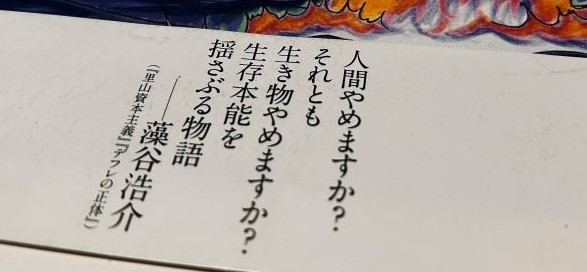 人間やめますか？
それとも
生き物やめますか？
生存本能を
揺さぶる物語
――藻谷浩介
（『里山資本主義』『デフレの正体』）